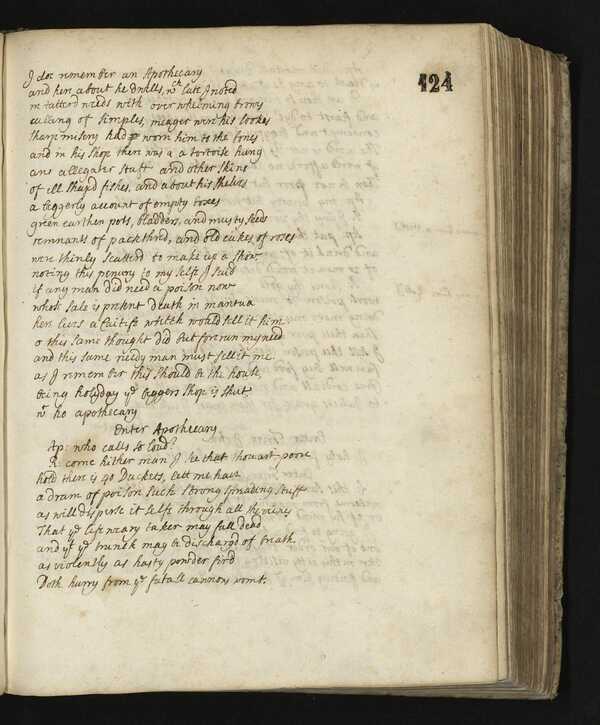 124
I doe remember an Apothecary
and here about he dwells, wch late I noted
in tatterd weeds with overwhelming brows
culling of simples, meager were his lookes
sharp misery had worn him to the bones
and in his shop there was a a tortoise hung
an allegater stuft and other skins
of ill shapd fishes, and about his shelves
a beggerly account of empty boxes
green earthen pots, bladders, and musty seeds
remnants of packthred, and old cakes of roses
were thinly scatterd to make up a show
noting this penury to my selfe I said
if any man did need a poison now
whose sale is present death in mantua
here lives a Caitife wretch would sell it him
o this same thought did but forerun my need
and this same needy man must sell it me
as I remember this should be the house
being holyday ye beggers shop is shut
wt ho apothecary
Enter Apothecary
Ap: who calls so loud?
R: come hither man I see that thou art poore
hold there is 40 Duckets, lett me have
a dram of poison such strong speading stuff
as will disperse it selfe through all the veines
That ye life weary taker may fall dead
and yt ye trunck may be discharged of breath
as violently as hasty powder fird
Doth hurry from ye fatall cannons womb.